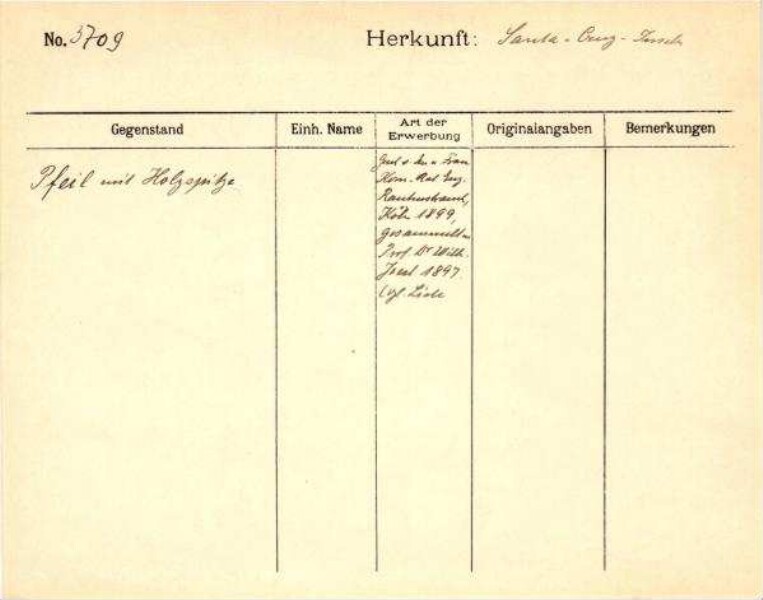 No. 3709
Herkunft: Santa-Cruz-Inseln
Gegenstand
Einh. Name
Art der
Erwerbung
Originalangaben
Bemerkungen
Pfeil mit Holzspitze
Frau
Kom. Rat Eug.
Rautenstrauch,
Köln 1899,
gesammelt
Prof. Dr Wilh.
Joest 1897.
(vgl. Liste